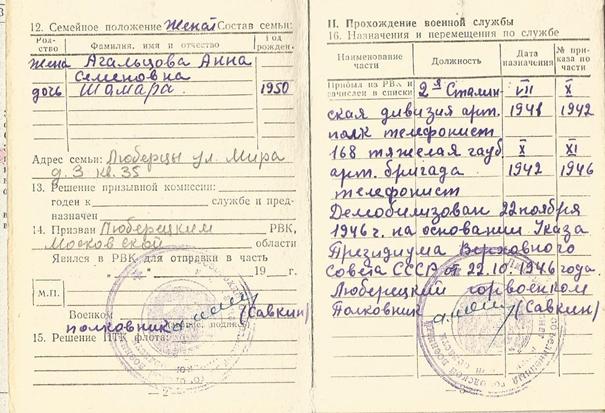 12. Семейное положение Женат Состав семьи:
Родство Фамилия, имя и отчество Год рожден.
жена Агальцова Анна
Семеновна
дочь Тамара. 1950
Адрес семьи: Люберцы ул. Мира
д. 3 кв. 35
13. Решение призывной комиссии:
годен к службе и пред-
назначен
14. Призван Люберецким РВК,
Московской области
Явился в РВК для отправки в часть
" " 19 г.
М.П.
Военком
полковник (Савкин)
15. Решение ПТК флота:
II. Прохождение военной службы
16. Назначения и перемещения по службе
Наименование части Должность Дата назначения № приказа по части
Прибыл из РВК и
зачислен в списки 2я Сталин- VII X
ская дивизия арт. 1941 1942
полк телефонист
168 тяжелая гауб X XI
арт. бригада 1942 1946
телефонист
Демобилизован 22 ноября
1946 г. на основании Указа
Президиума Верховного
Совета СССР от 22.10.1946 года.
Люберецкий горвоенком
Полковник (Савкин)